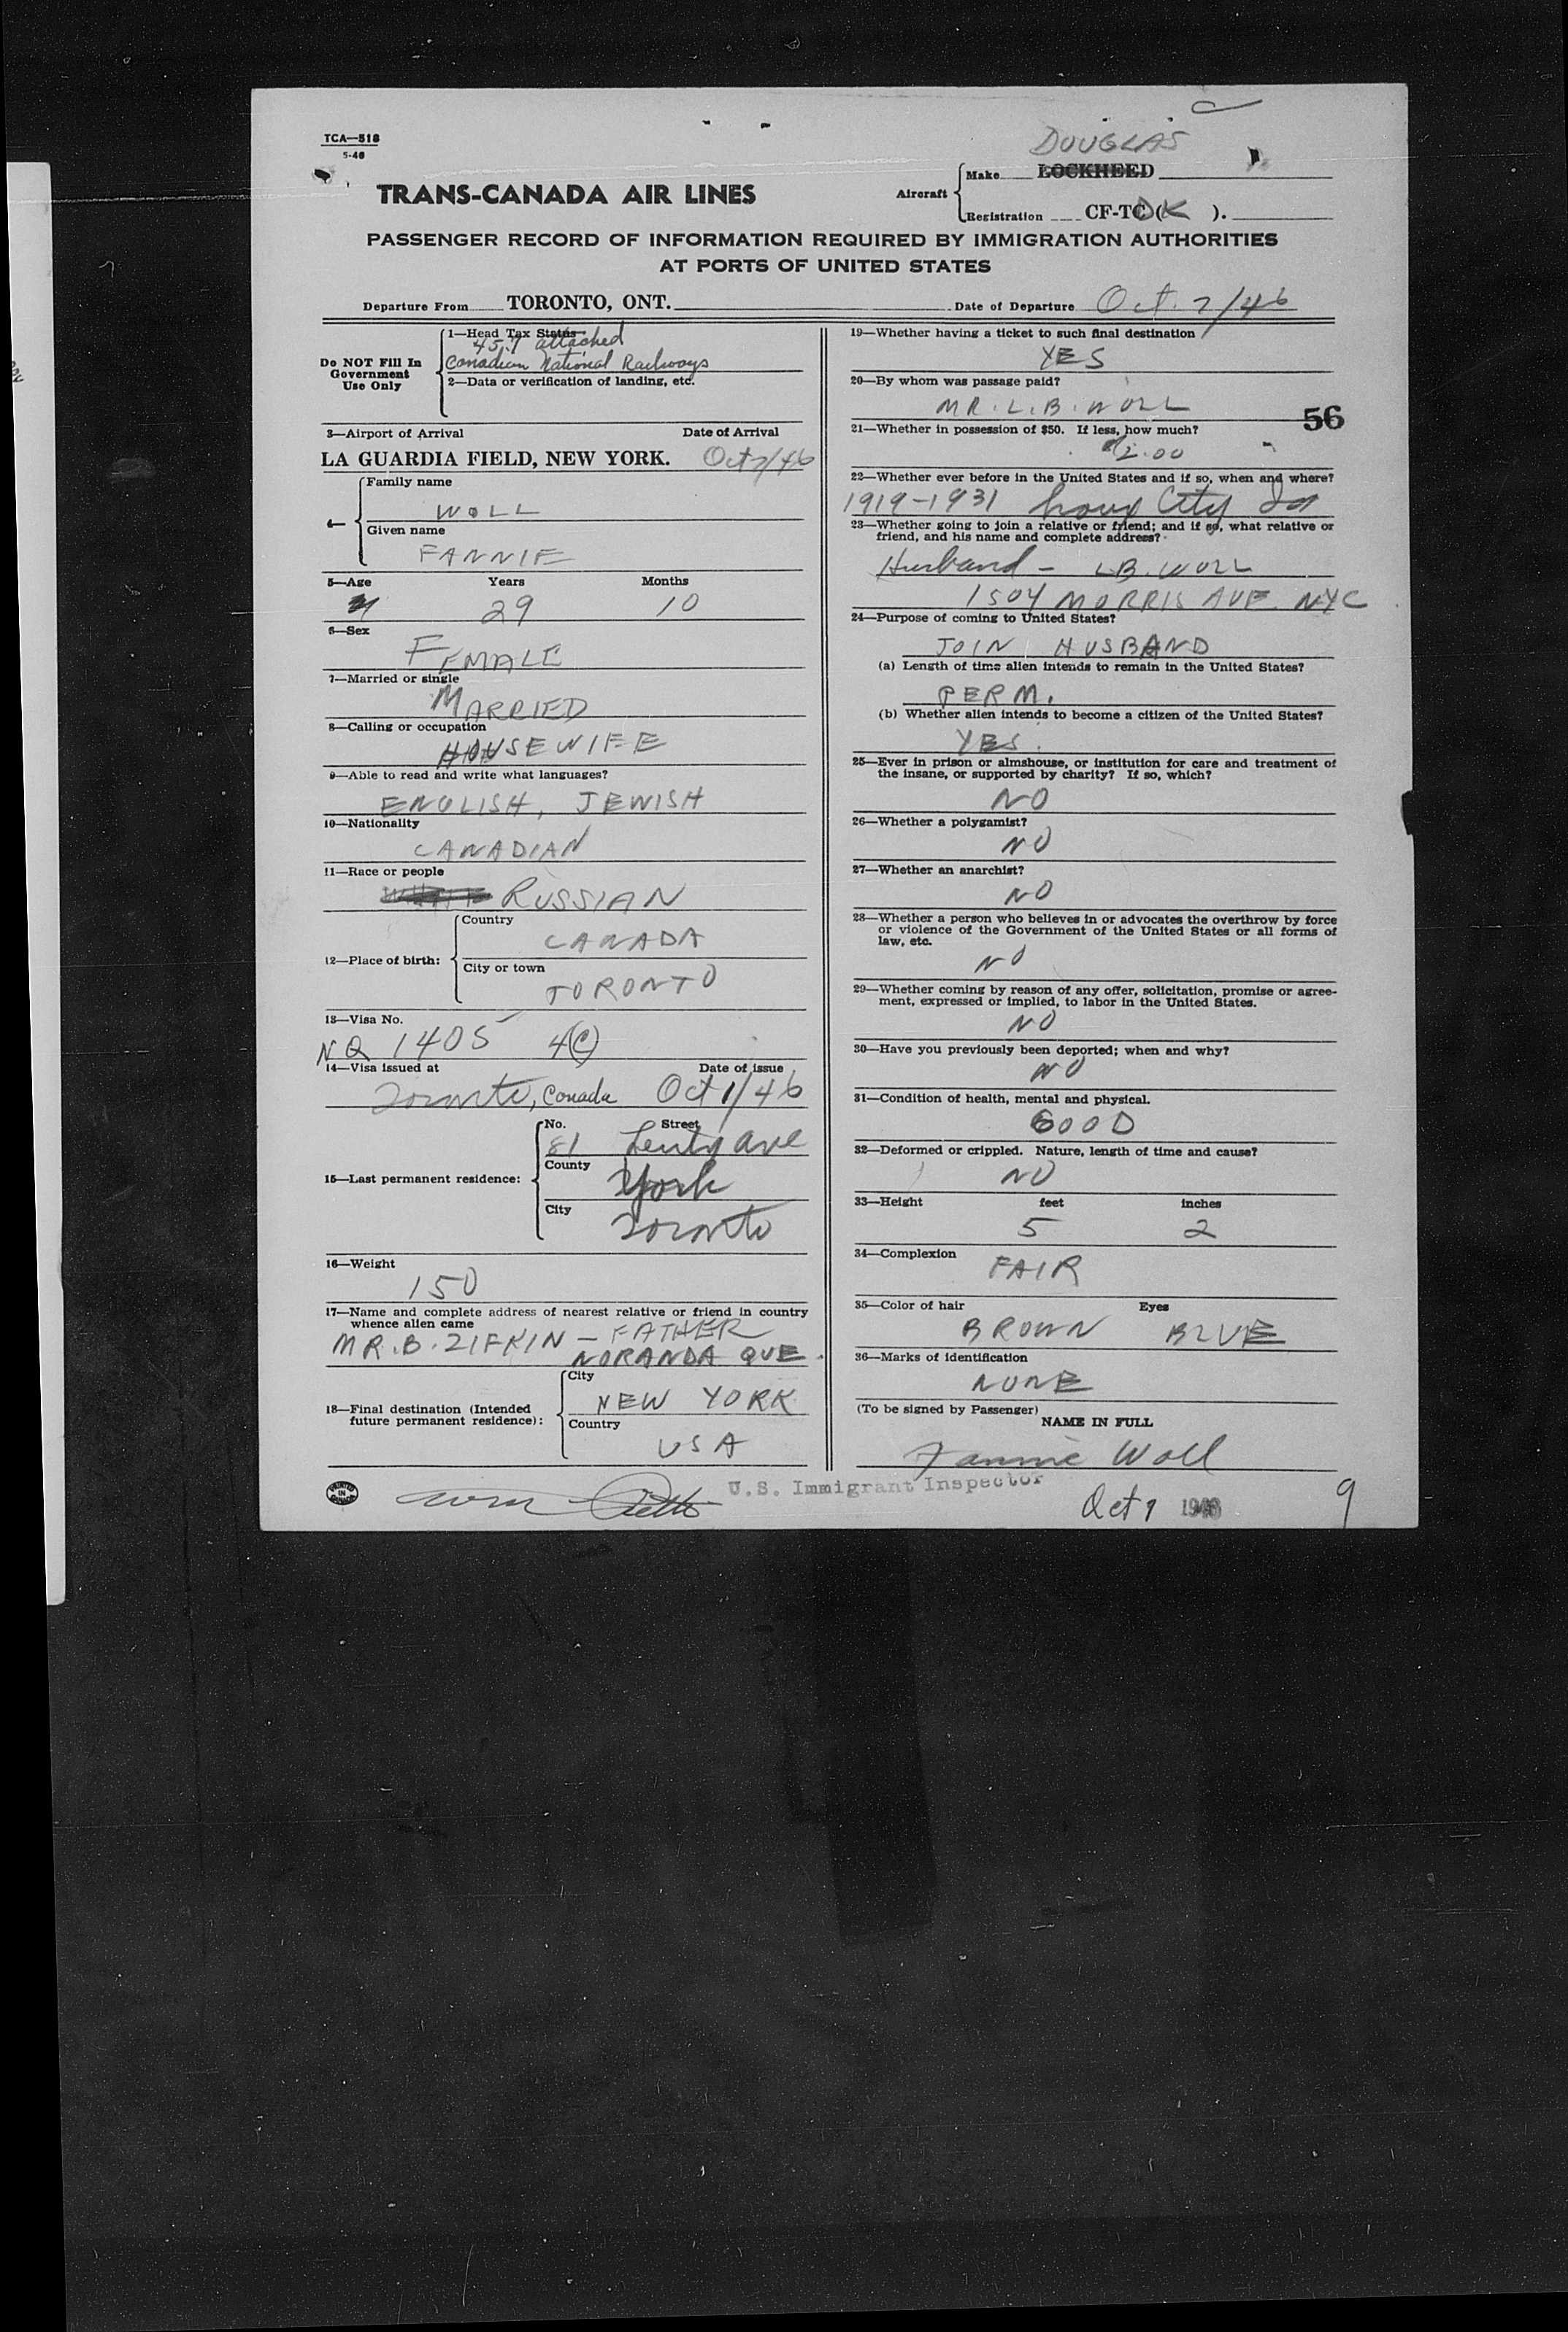 TCA—518
5-46
DOUGLAS
TRANS-CANADA AIR LINES
Aircraft
Make LOCKHEED
Registration CF-TC (DK ).
PASSENGER RECORD OF INFORMATION REQUIRED BY IMMIGRATION AUTHORITIES
AT PORTS OF UNITED STATES
Departure From TORONTO, ONT. Date of Departure Oct. 7/46
Do NOT Fill In
Government
Use Only
1—Head Tax Status
attached
Canadian National Railways
2—Data or verification of landing, etc.
3—Airport of Arrival Date of Arrival
LA GUARDIA FIELD, NEW YORK. Oct 7/46
Family name
WOLL
Given name
FANNIE
5—Age Years Months
29 10
6—Sex
FEMALE
7—Married or single
MARRIED
8—Calling or occupation
HOUSEWIFE
9—Able to read and write what languages?
ENGLISH, JEWISH
10—Nationality
CANADIAN
11—Race or people
RUSSIAN
12—Place of birth:
Country
CANADA
City or town
TORONTO
13—Visa No.
NQ 1405 4(C)
14—Visa issued at Date of issue
Toronto, Canada Oct 1/46
15—Last permanent residence:
No. Street
81 Ave
County
York
City
Toronto
16—Weight
150
17—Name and complete address of nearest relative or friend in country
whence alien came
MR. B. ZIFKIN — FATHER
NORANDA QUE.
18—Final destination (Intended
future permanent residence):
City
NEW YORK
Country
USA
19—Whether having a ticket to such final destination
YES
20—By whom was passage paid?
MR. L. B. WOLL
56
21—Whether in possession of $50. If less, how much?
2.00
22—Whether ever before in the United States and if so, when and where?
1919-1931 City
23—Whether going to join a relative or friend; and if so, what relative or
friend, and his name and complete address?
Husband — L.B. WOLL
1504 MORRIS AVE. NYC
24—Purpose of coming to United States?
JOIN HUSBAND
(a) Length of time alien intends to remain in the United States?
PERM.
(b) Whether alien intends to become a citizen of the United States?
YES.
25—Ever in prison or almshouse, or institution for care and treatment of
the insane, or supported by charity? If so, which?
NO
26—Whether a polygamist?
NO
27—Whether an anarchist?
NO
28—Whether a person who believes in or advocates the overthrow by force
or violence of the Government of the United States or all forms of
law, etc.
NO
29—Whether coming by reason of any offer, solicitation, promise or agree-
ment, expressed or implied, to labor in the United States.
NO
30—Have you previously been deported; when and why?
NO
31—Condition of health, mental and physical.
GOOD
32—Deformed or crippled. Nature, length of time and cause?
NO
33—Height feet inches
5 2
34—Complexion
FAIR
35—Color of hair Eyes
BROWN BLUE
36—Marks of identification
NONE
(To be signed by Passenger)
NAME IN FULL
Fannie Woll
PRINTED IN CANADA
U.S. Immigrant Inspector
Oct 7 1946
9